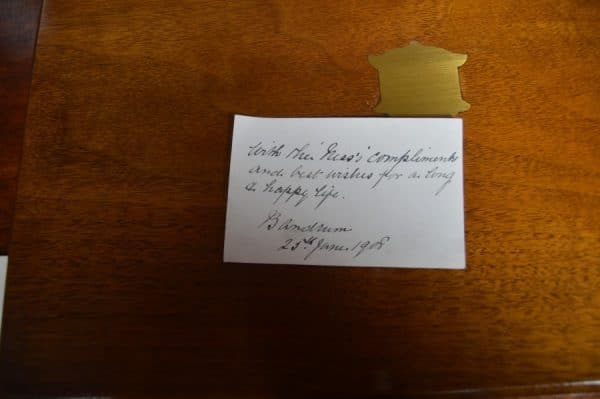 With the 'Mess's' compliments
and best wishes for a long
& happy life.
Bandrum
25th June 1908